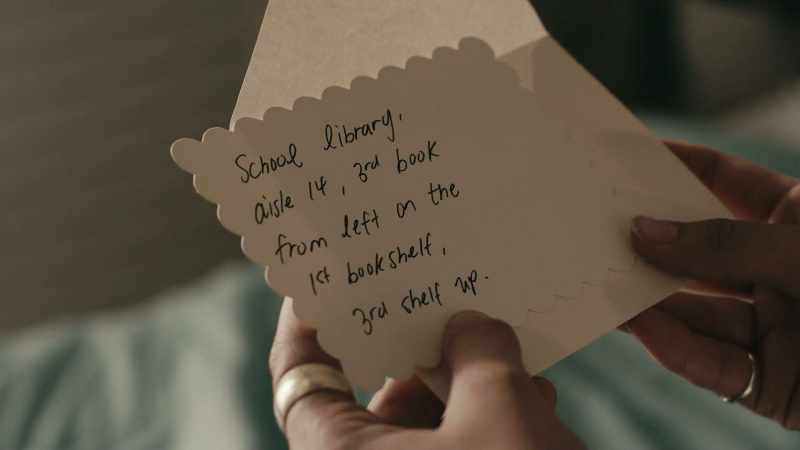 School library,
aisle 14, 3rd book
from left on the
1st bookshelf,
3rd shelf up.